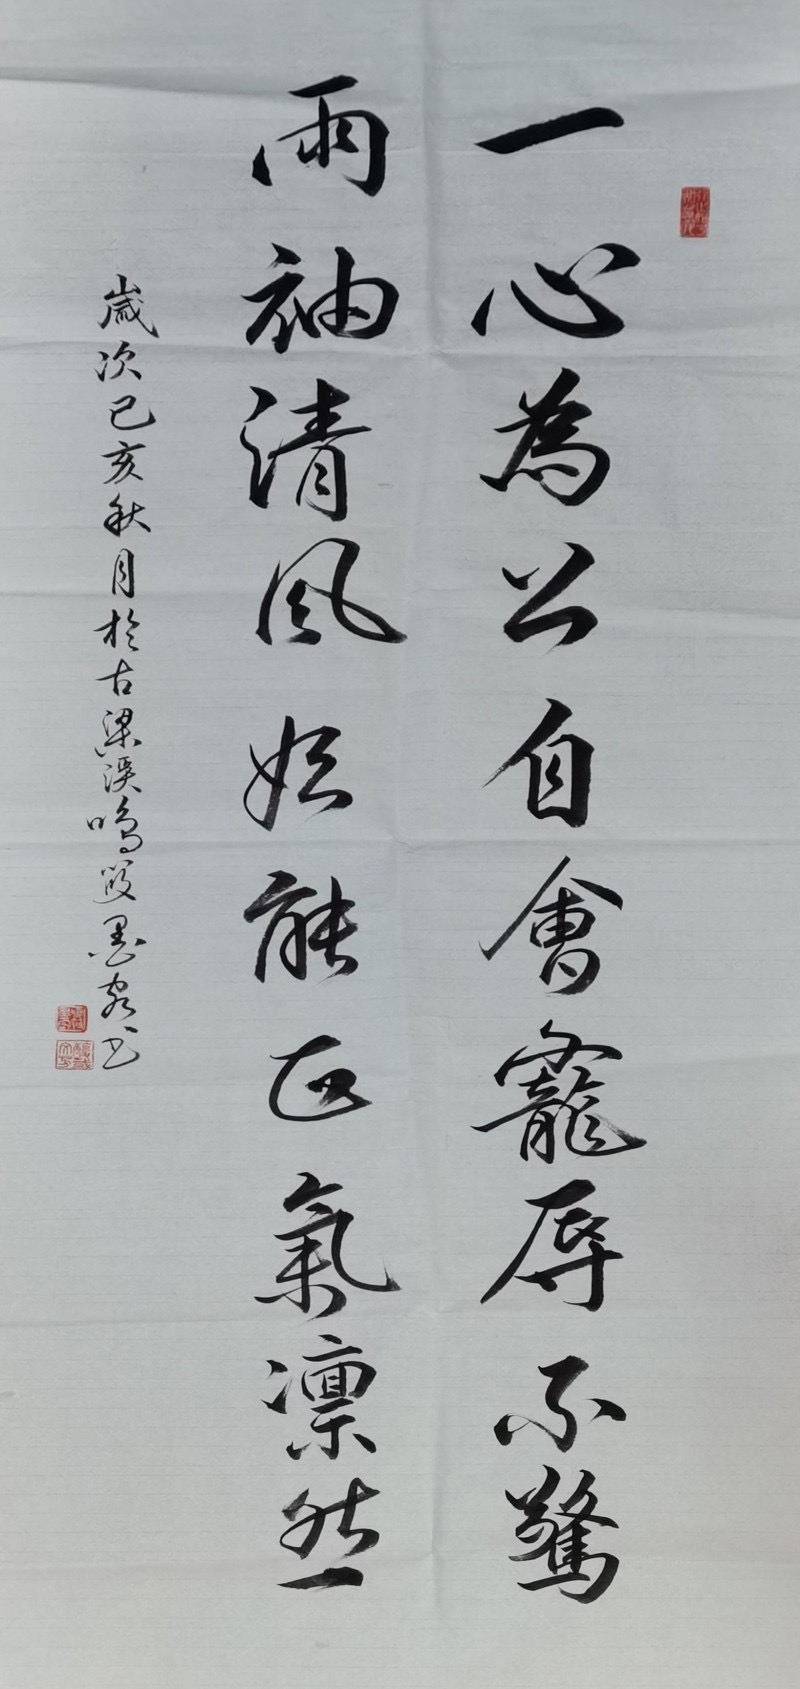 一心為公自會寵辱不驚
兩袖清風始能正氣凜然
歲次己亥秋月於古梁溪鳴 墨 書